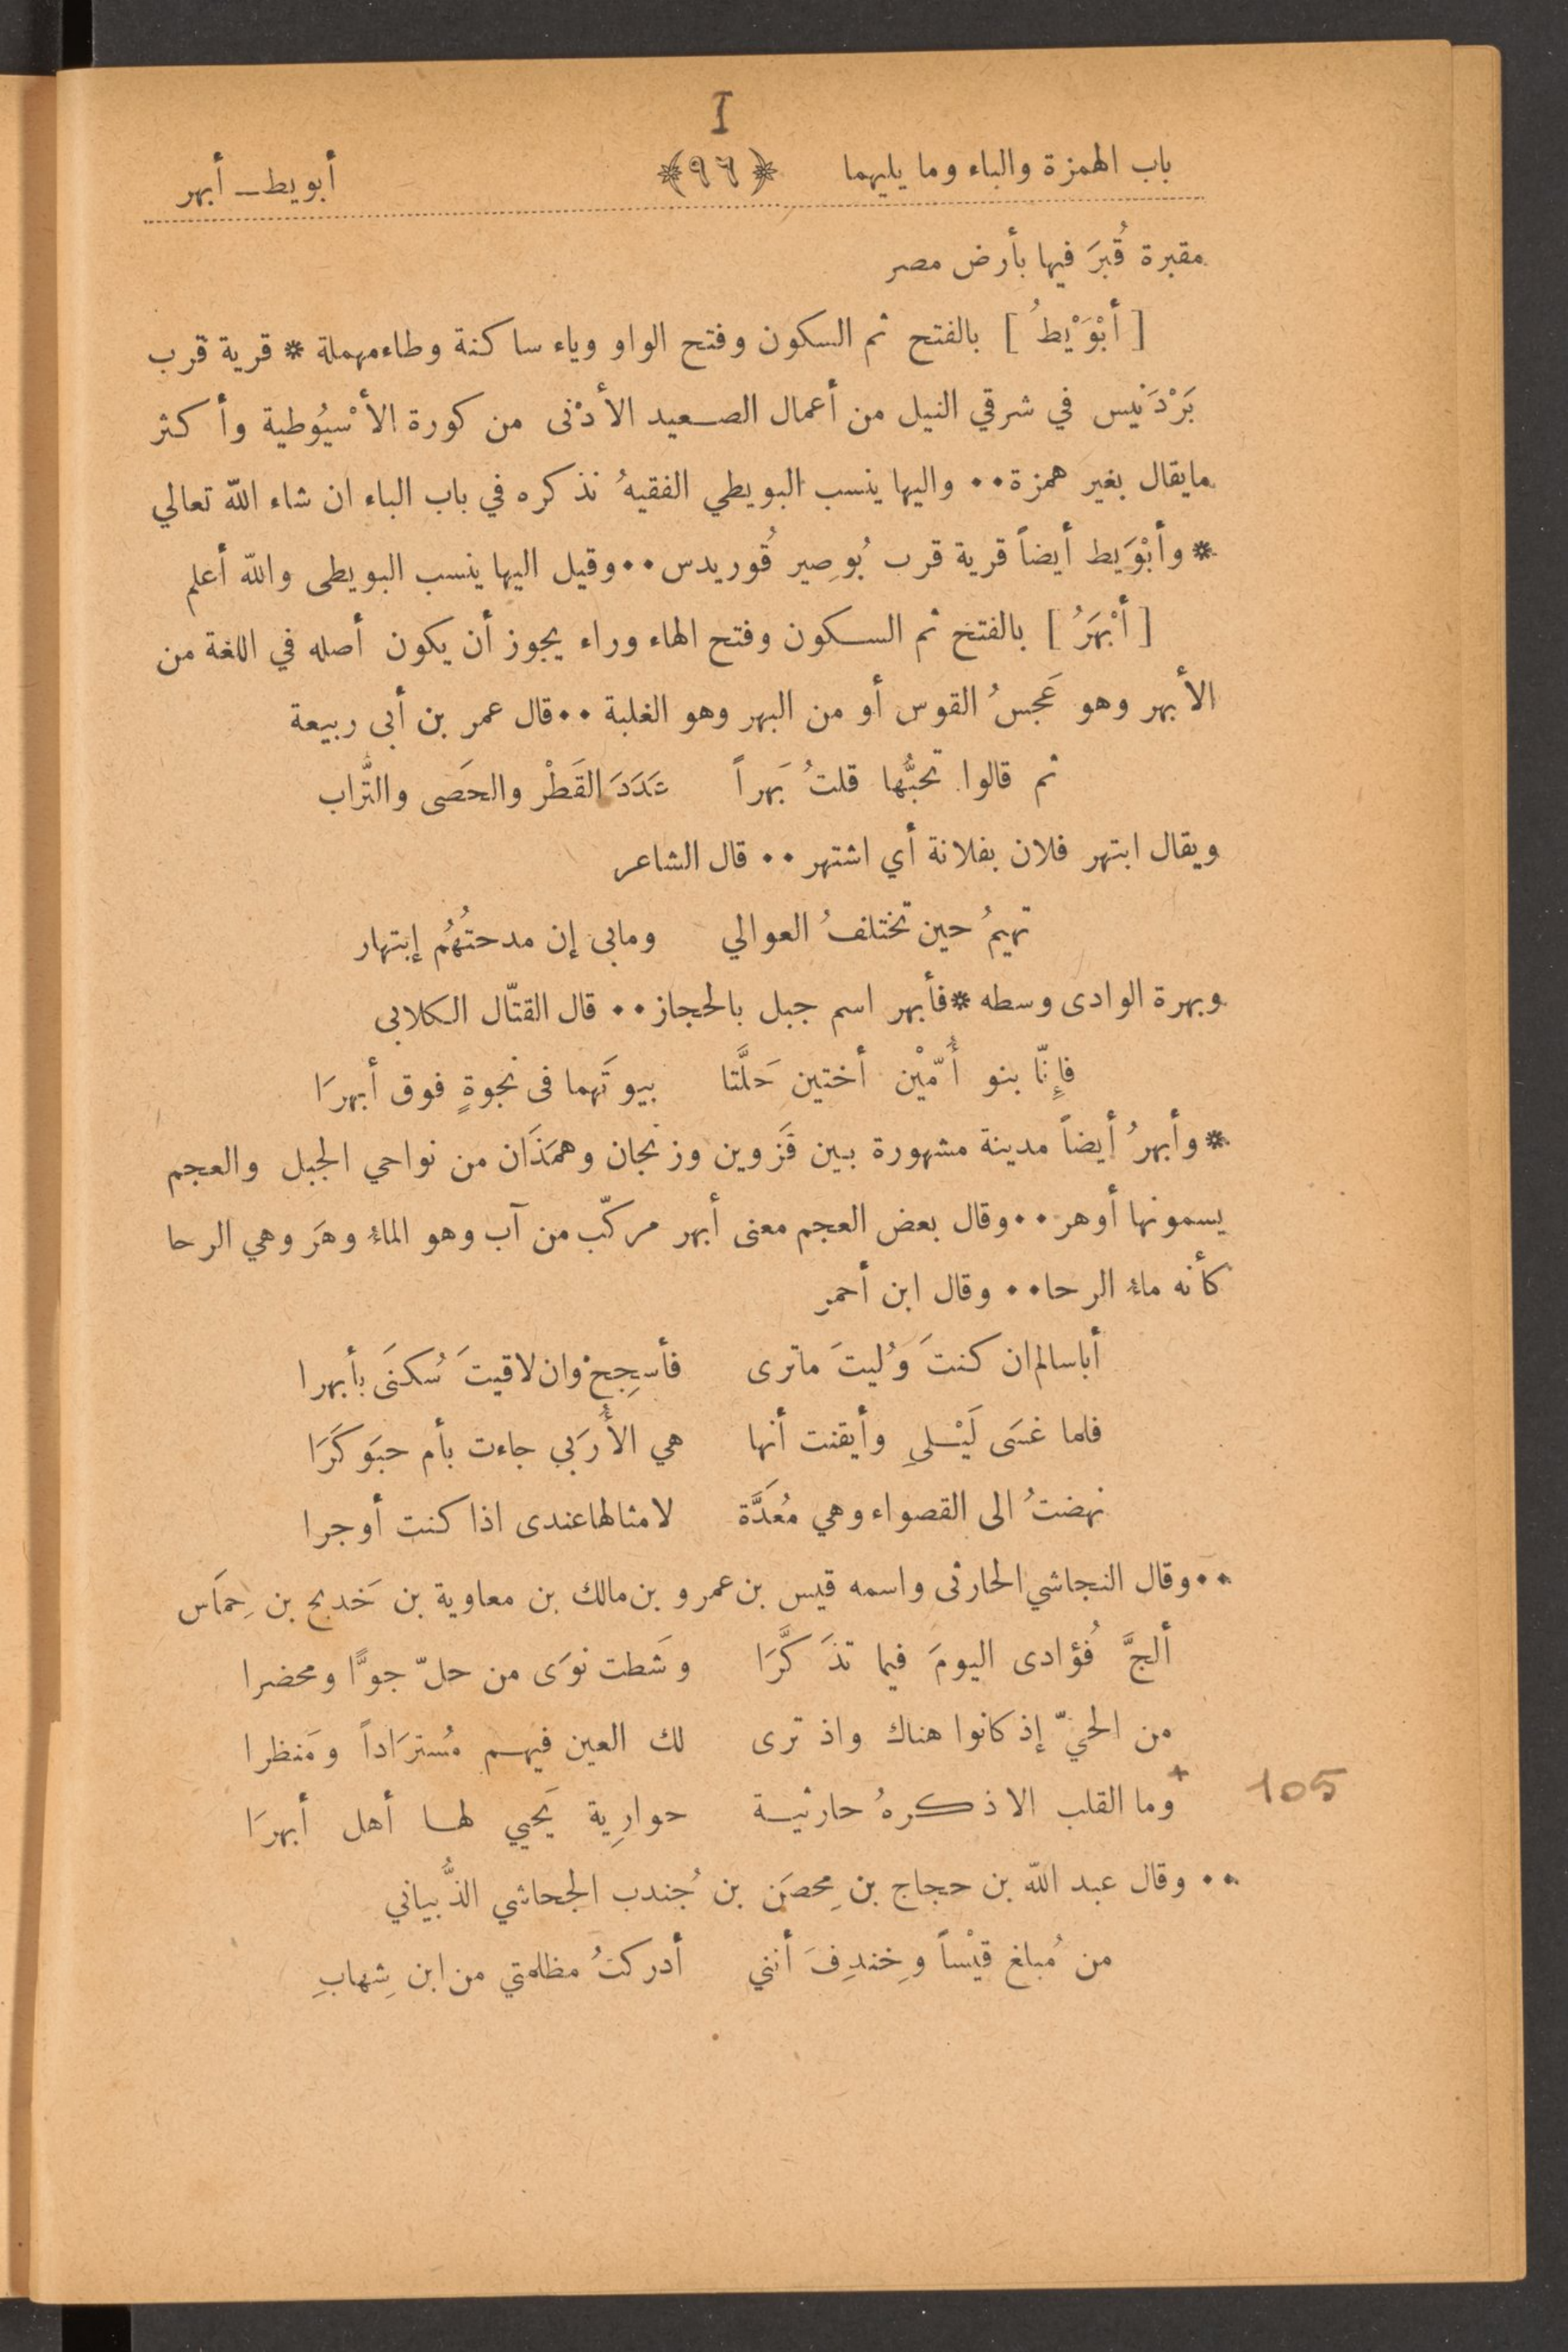 I
باب الهمزة والباء وما يليهما ﴿٩٦﴾ أبويط ـ أبهر
مقبرة قُبرَ فيها بأرض مصر
[ أبْوَيْطُ ] بالفتح ثم السكون وفتح الواو وياء ساكنة وطاء مهملة * قرية قرب
بَرْدَنيس في شرقي النيل من أعمال الصعيد الأدْنى من كورة الأسْيُوطية وأكثر
مايقال بغير همزة•• واليها ينسب البويطي الفقيهُ نذكره في باب الباء ان شاء الله تعالي
* وأبْوَيط أيضاً قرية قرب بُوصِير قُوريدس••وقيل اليها ينسب البويطى والله أعلم
[ أبْهَرُ ] بالفتح ثم السكون وفتح الهاء وراء يجوز أن يكون أصله في اللغة من
الأبهر وهو عَجسُ القوس أو من البهر وهو الغلبة ••قال عمر بن أبى ربيعة
ثم قالوا تحبُّها قلتُ بَهراً عَدَدَ القَطْر والحَصَى والتَّراب
ويقال ابتهر فلان بفلانة أي اشتهر •• قال الشاعر
تهيمُ حين تختلفُ العوالي ومابى إن مدحتُهُم إبتهار
وبهرة الوادى وسطه *فأبهر اسم جبل بالحجاز•• قال القتّال الكلابى
فإِنّا بنو أُمّيْن أختين حَلَّتا بيوتَهما فى نجوةٍ فوق أبهرَا
* وأبهرُ أيضاً مدينة مشهورة بين قَزوين وزنجان وهمَذَان من نواحي الجبل والعجم
يسمونها أوهر••وقال بعض العجم معنى أبهر مركّب من آب وهو الماء وهَر وهي الرحا
كأنه ماء الرحا•• وقال ابن أحمر
أباسالم ان كنتَ وُليتَ ماترى فأسجِحْ وان لاقيتَ سُكنَى بأبهرا
فلما غسَى لَيْلىِ وأيقنت أنها هي الأُرَبي جاءت بأم حبَوكَرَا
نهضتُ الى القصواء وهي مُعَدَّة لامثالها عندى اذا كنت أوجرا
••وقال النجاشي الحارثى واسمه قيس بن عمرو بن مالك بن معاوية بن خَديج بن حِمَاس
ألجَّ فُؤادى اليومَ فيما تذَكَّرَا وشَطت نوَى من حلّ جوًّا ومحضرا
من الحيّ إذ كانوا هناك واذ ترى لك العين فيهم مُسترَاداً ومَنظرا
+وما القلب الا ذكرهُ حارثية حوارِية يَحيي لها أهل أبهرَا 105
•• وقال عبد الله بن حجاج بن مِحصَن بن جُندب الجحاشي الذُّبياني
من مُبلغ قيْساً وخِندِفَ أنني أدركتُ مظلمتي من ابن شِهابِ